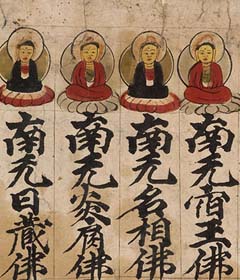 南无宿王佛
南无名相佛
南无炎肩佛
南无日藏佛